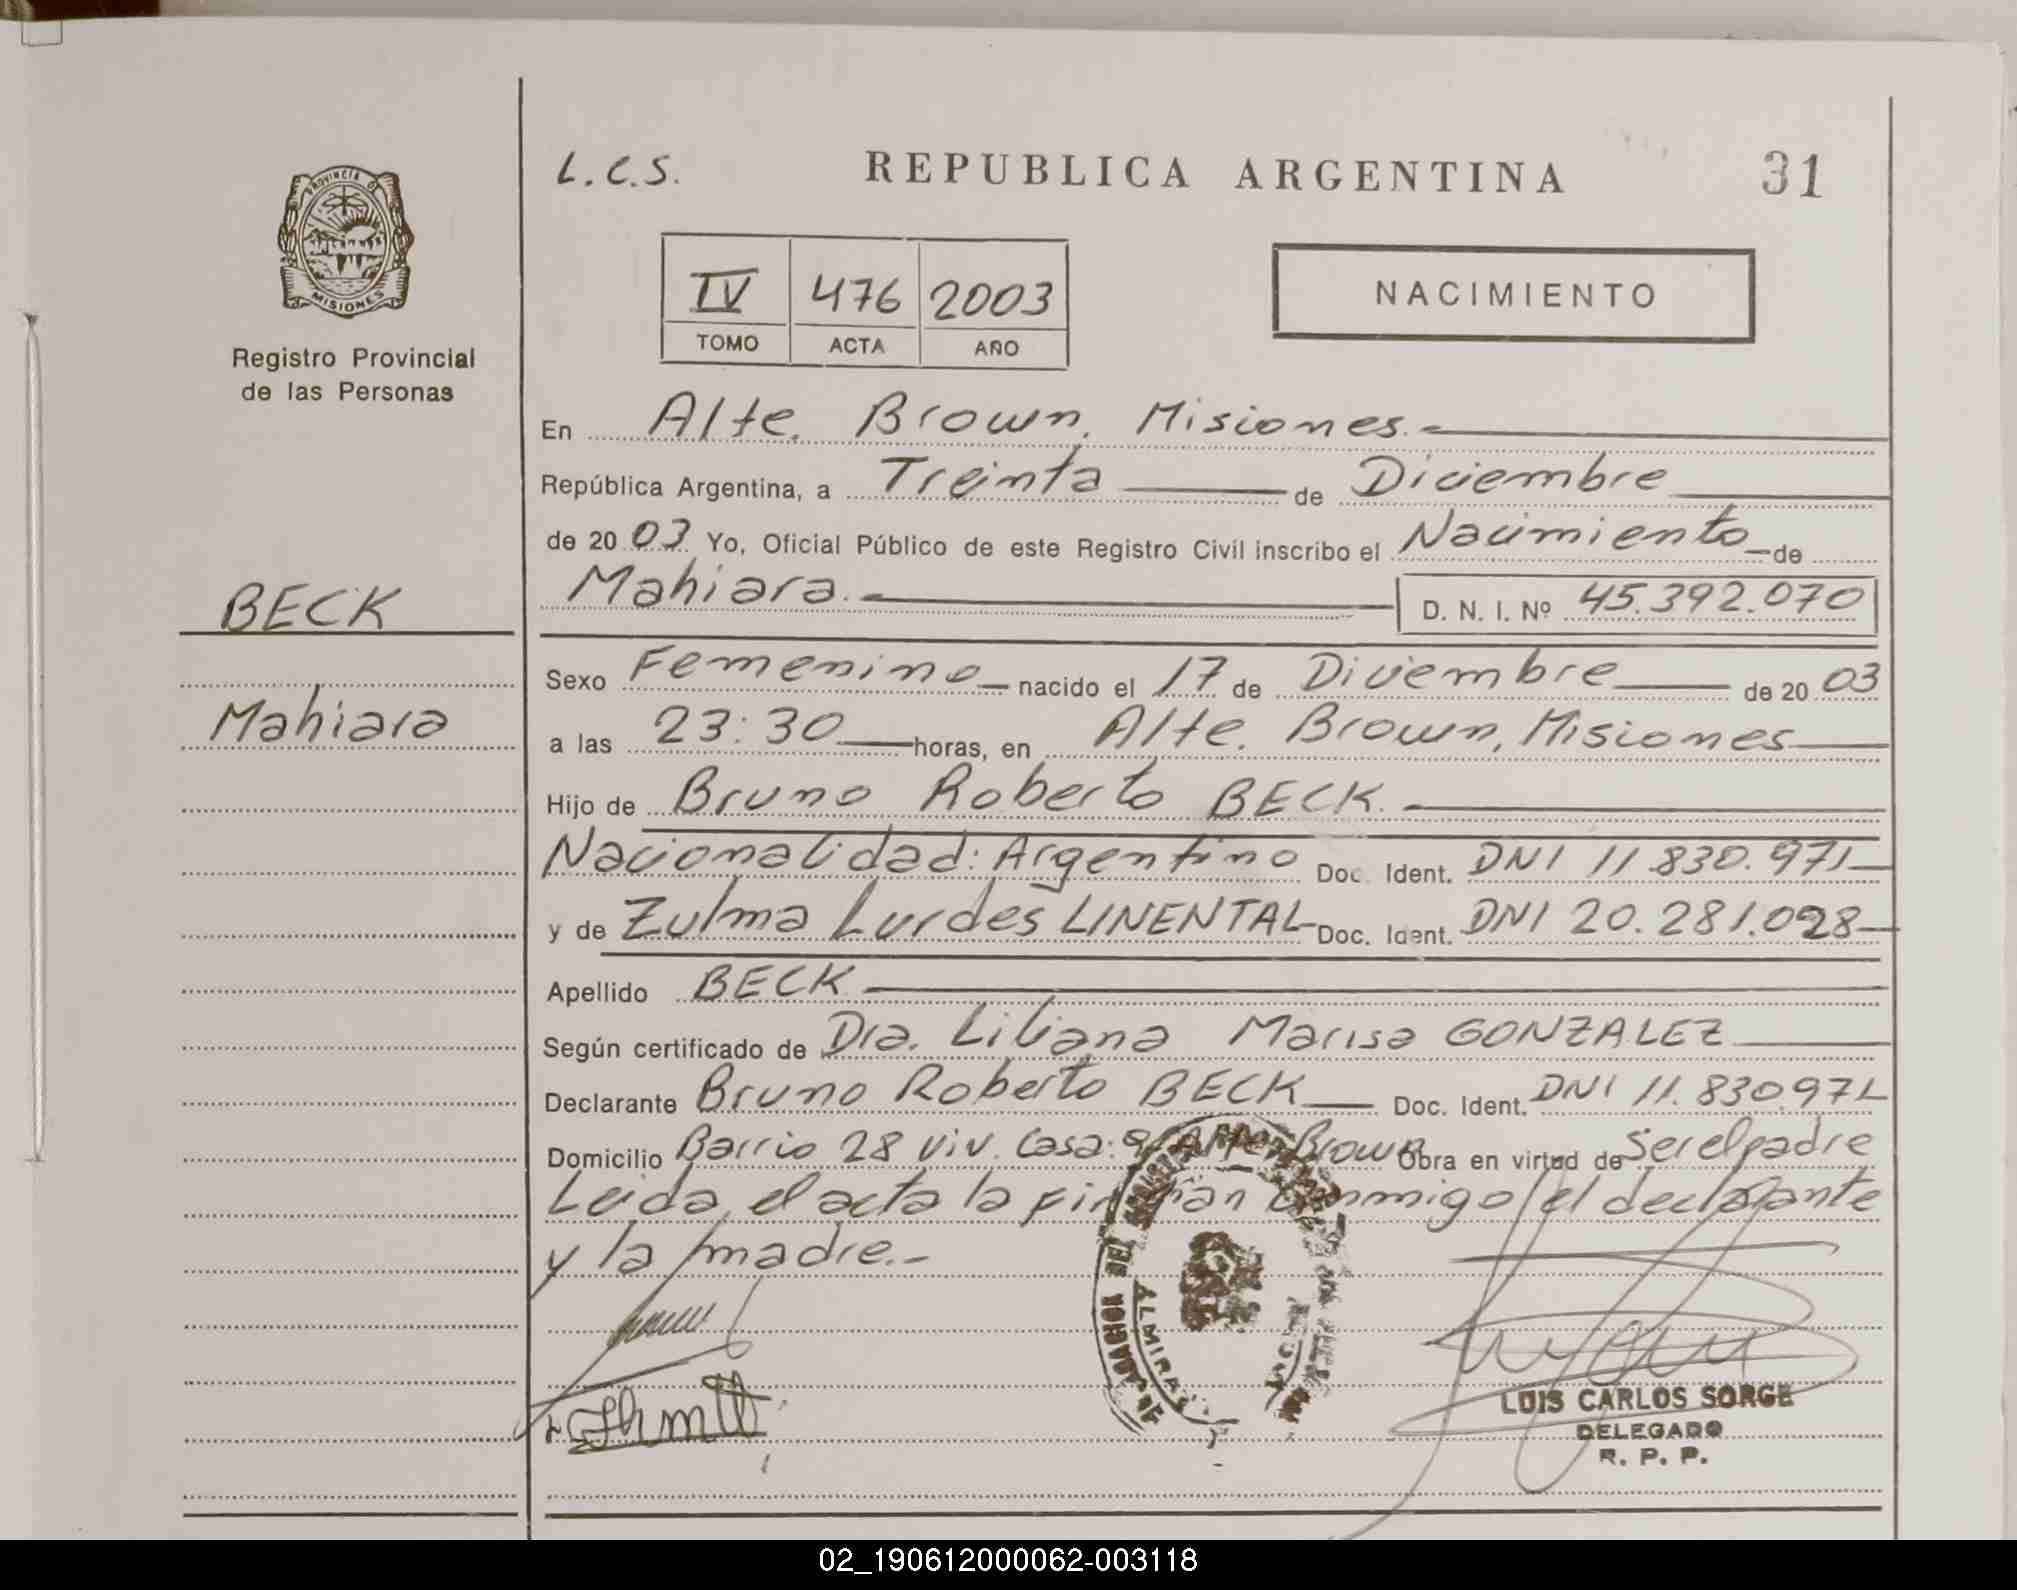 PROVINCIA D
MISIONES
Registro Provincial
de las Personas
BECK
Mahiara
L.C.S. REPUBLICA ARGENTINA 31
IV 476 2003
TOMO ACTA AÑO
NACIMIENTO
En Alte. Brown, Misiones.-
República Argentina, a Treinta de Diciembre
de 2003 Yo, Oficial Público de este Registro Civil inscribo el Nacimiento de
Mahiara.- D. N. I. Nº 45.392.070
Sexo Femenino nacido el 17 de Diciembre de 2003
a las 23:30 horas, en Alte. Brown, Misiones
Hijo de Bruno Roberto BECK.
Nacionalidad: Argentino Doc. Ident. DNI 11.830.971
y de Zulma Lurdes LINENTAL Doc. Ident. DNI 20.281.028
Apellido BECK
Según certificado de Dra. Liliana Marisa GONZALEZ
Declarante Bruno Roberto BECK Doc. Ident. DNI 11.830.971
Domicilio Barrio 28 Viv. Casa: 9 Alte. Brown Obra en virtud de Ser el padre
Leida el acta la firman conmigo el declarante
y la madre.-
LUIS CARLOS SORGE
DELEGADO
R. P. P.
02_190612000062-003118